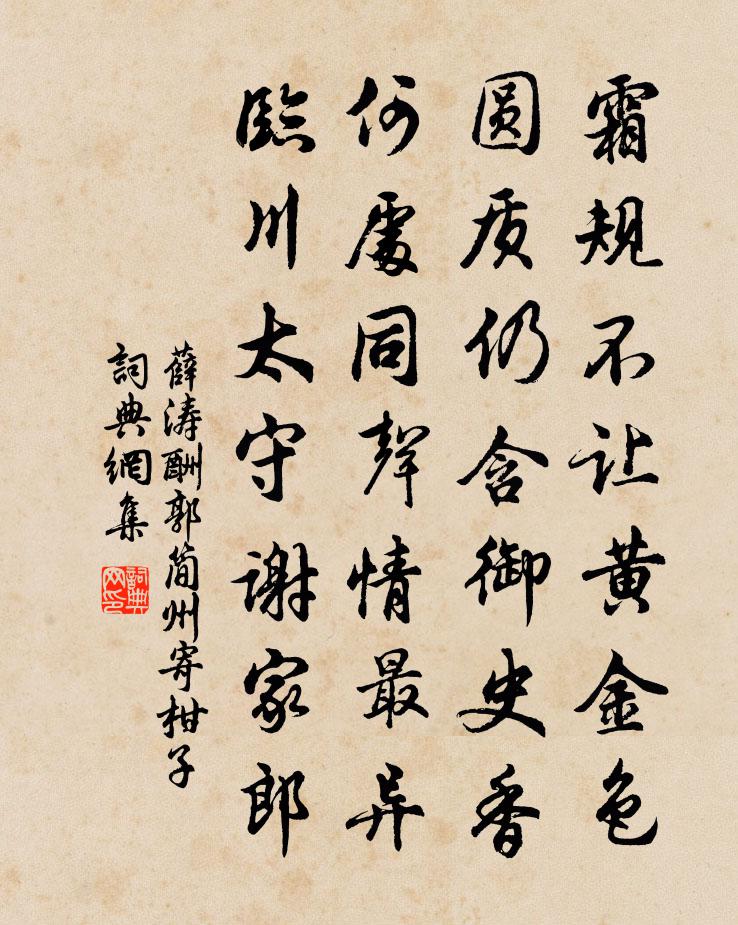 霜规不让黄金色
圆质仍含御史香
何處同聲情最异
臨川太守谢家郎
薛涛酬郭简州寄柑子
詞典網集
詞典网印